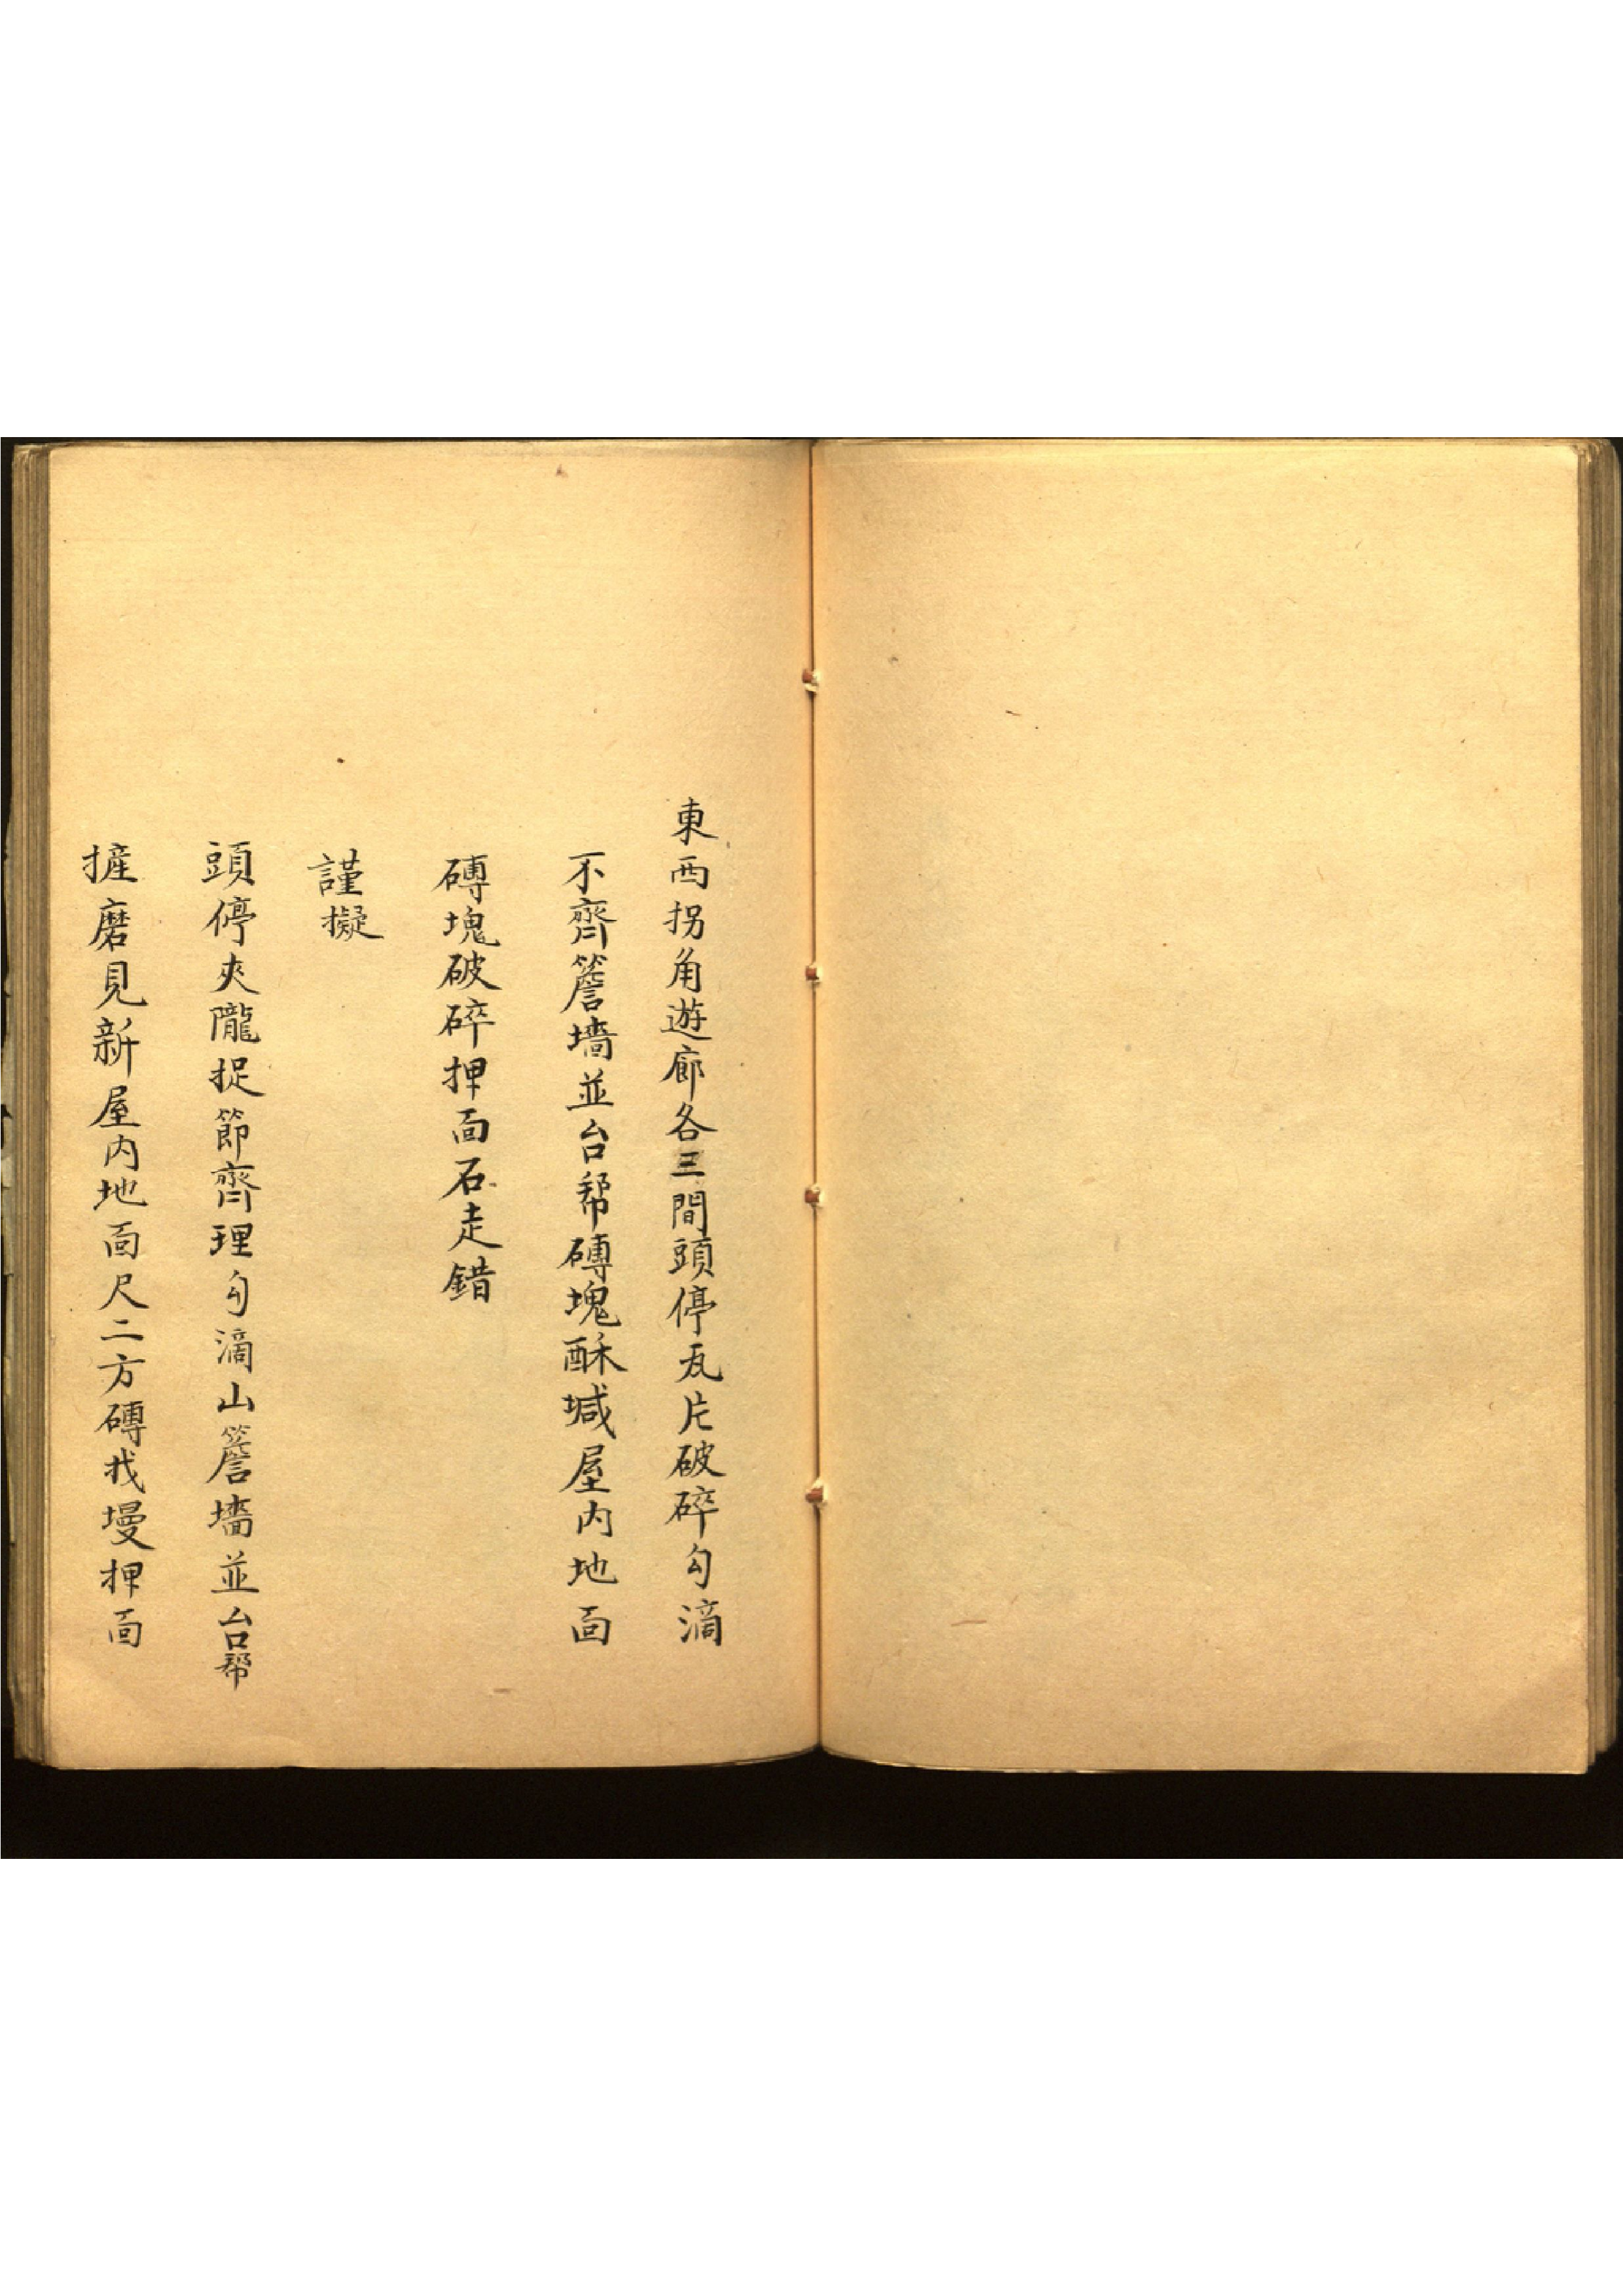 東西拐角遊廊各三間頭停瓦片破碎勾滴
不齊簷墻並台幇磚塊酥堿屋内地面
磚塊破碎押面石走錯
謹擬
頭停夾隴捉節齊理勾滴山簷墻並台幇
摌磨見新屋内地面尺二方磚找墁押面